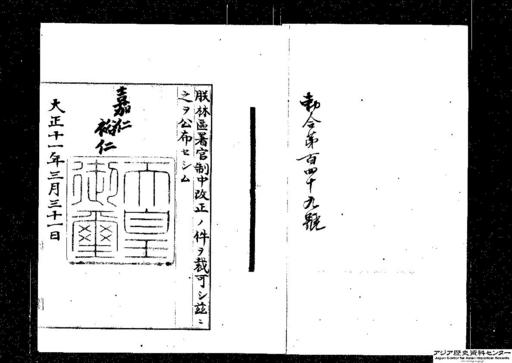 勅令第百四十九號
朕林區署官制中改正ノ件ヲ裁可シ茲ニ
之ヲ公布セシム
嘉仁
裕仁
天皇
御璽
大正十一年三月三十一日
アジア歴史資料センター
Japan Center for Asian Historical Records